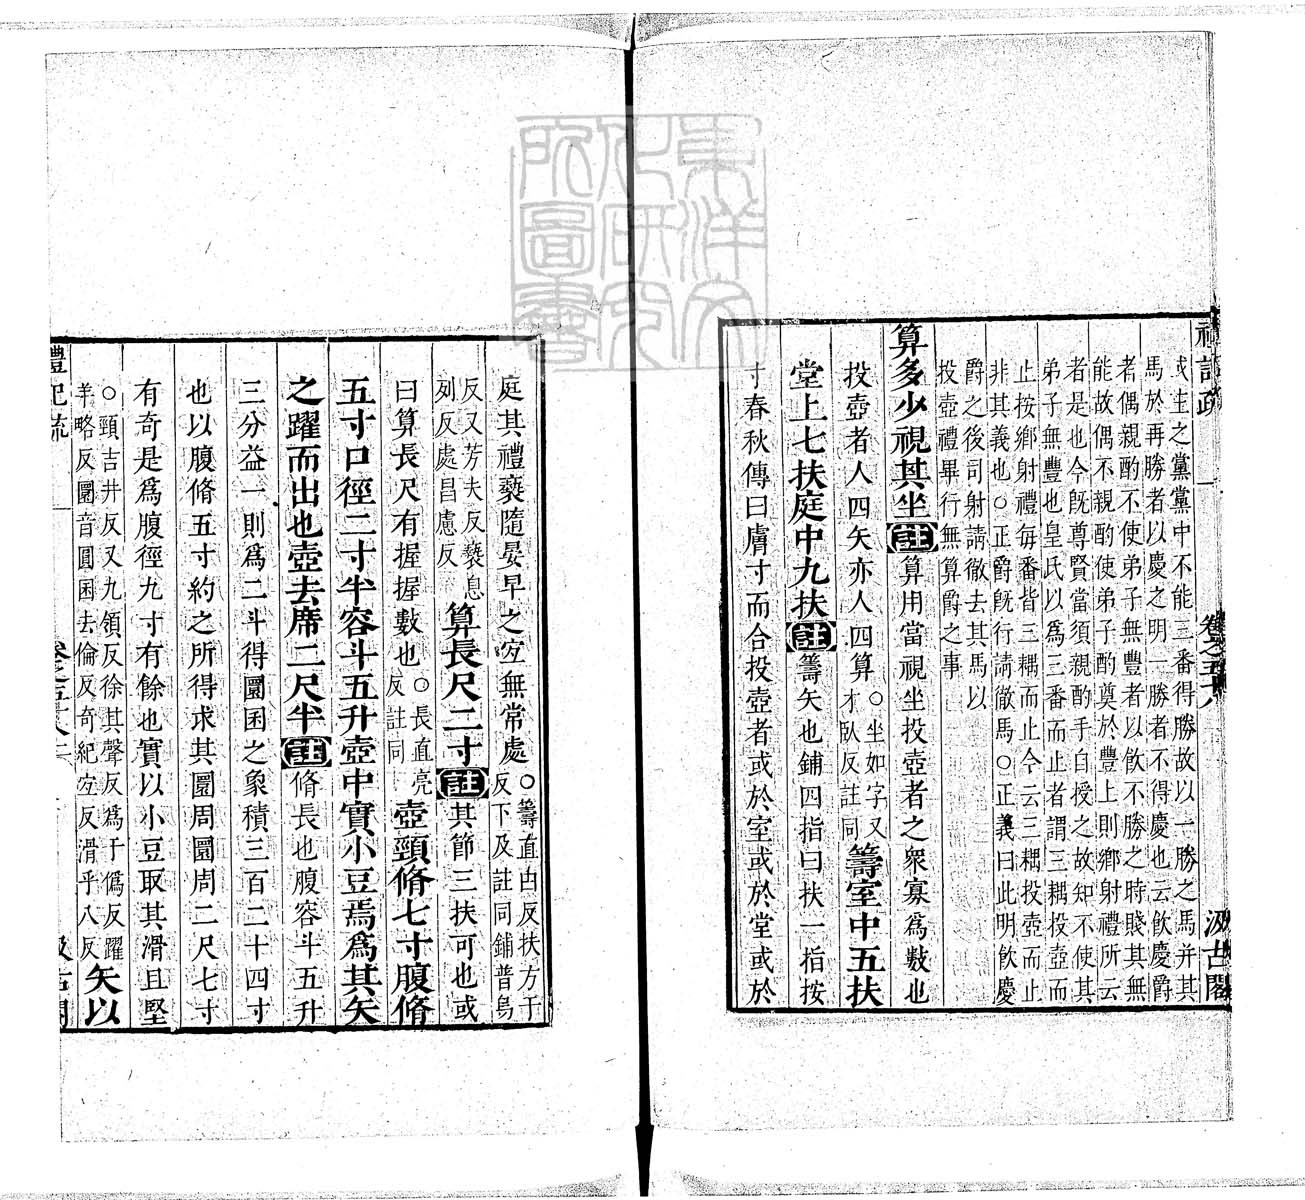 禮記疏 卷之五十八 汲古閣
或主之黨黨中不能三番得勝故以一勝之馬并其
馬於再勝者以慶之明一勝者不得慶也云飲慶爵
者偶親酌不使弟子無豐者以飲不勝之時賤其無
能故偶不親酌使弟子酌奠於豐上則鄉射禮所云
者是也今旣尊賢當須親酌手自授之故知不使其
弟子無豐也皇氏以爲三番而止者謂三耦投壺而
止按鄉射禮每番皆三耦而止今云三耦投壺而止
非其義也○正爵旣行請徹馬○正義曰此明飲慶
爵之後司射請徹去其馬以
投壺禮畢行無算爵之事
算多少視其坐註算用當視坐投壺者之衆寡爲數也
投壺者人四矢亦人四算○坐如字又才臥反註同籌室中五扶
堂上七扶庭中九扶註籌矢也鋪四指曰扶一指按
寸春秋傳曰膚寸而合投壺者或於室或於堂或於
庭其禮褻隨晏早之宐無常處○籌直由反扶方于反下及註同鋪普烏
反又芳夫反褻息列反處昌慮反算長尺二寸註其節三扶可也或
曰算長尺有握握數也○長直亮反註同壺頸脩七寸腹脩
五寸口徑二寸半容斗五升壺中實小豆焉爲其矢
之躍而出也壺去席二尺半註脩長也腹容斗五升
三分益一則爲二斗得圜囷之象積三百二十四寸
也以腹脩五寸約之所得求其圜周圜周二尺七寸
有奇是爲腹徑九寸有餘也實以小豆取其滑且堅
○頸吉井反又九領反徐其聲反爲于僞反躍羊略反圜音圓囷去倫反奇紀宐反滑乎八反矢以
禮記疏 卷之五十八 二 汲古閣
東洋文化研究所圖書